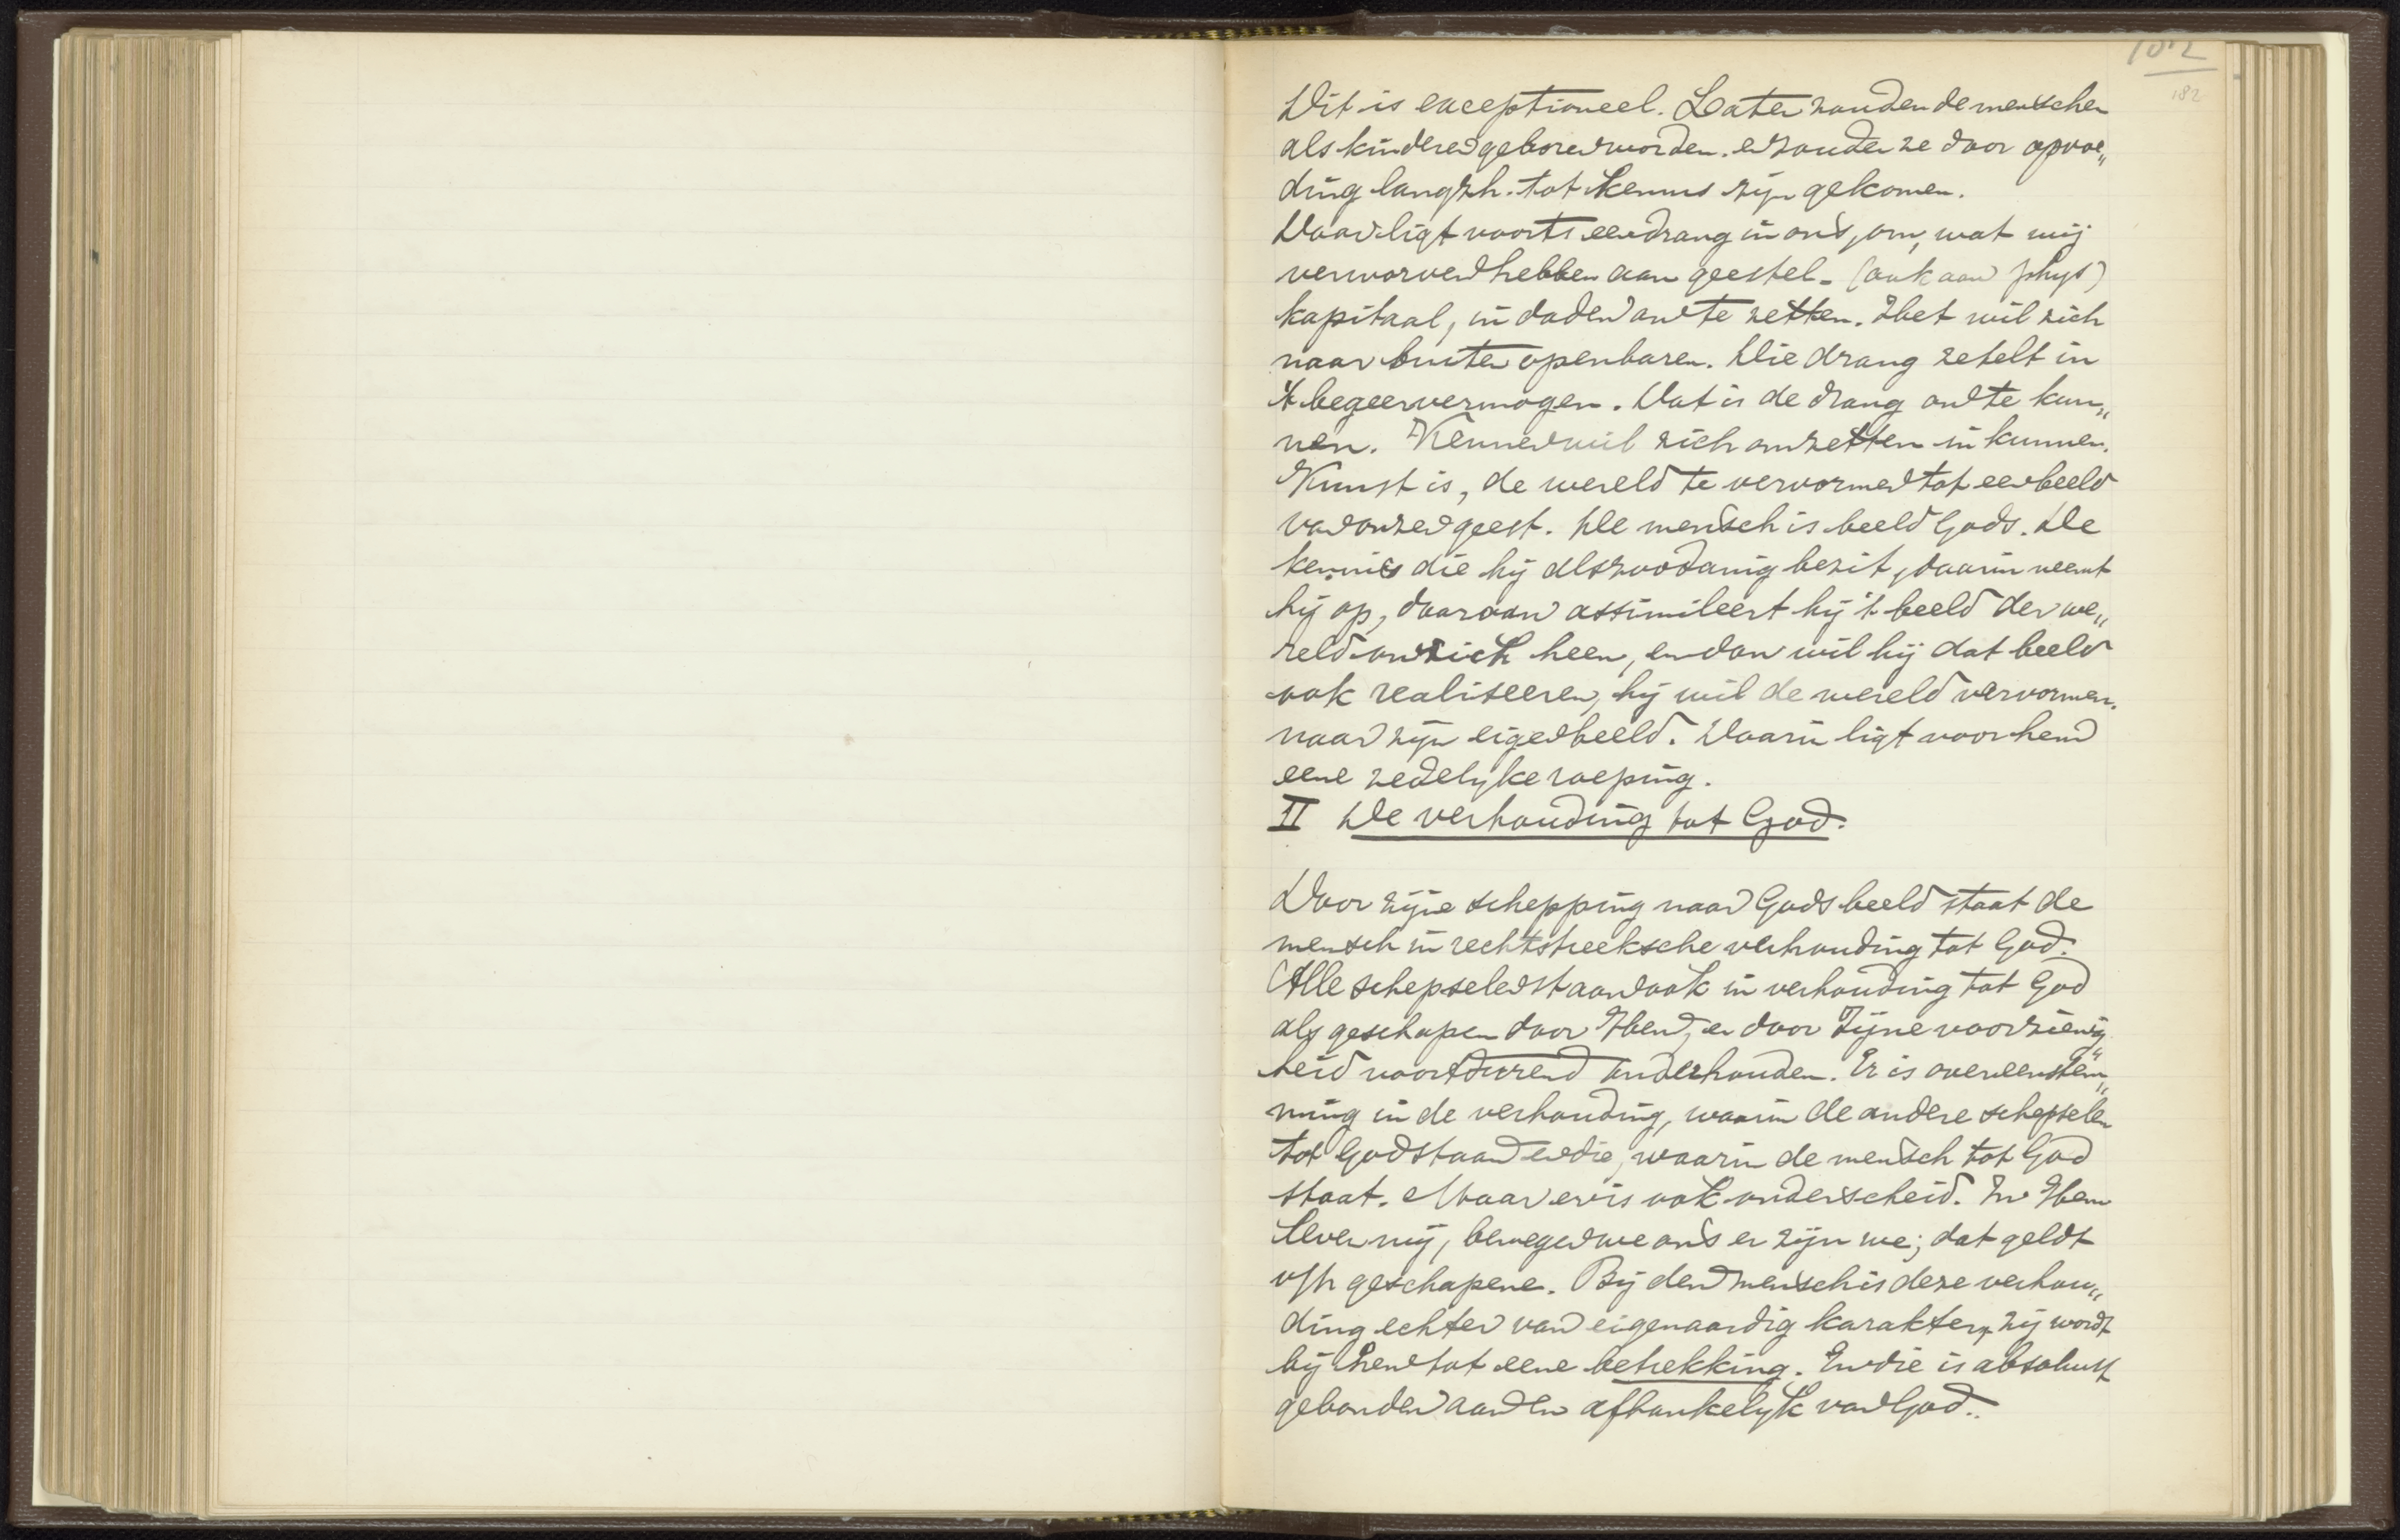 182
182
Dit is exceptioneel. Later zouden de menschen
als kinderen geboren worden. en zouden ze door opvoe„
ding langzh. tot kennis zijn gekomen.
Daar ligt voorts een drang in ons, om, wat wij
verworven hebben aan geestel. (ook aan phys)
kapitaal, in daden om te zetten. Het wil zich
naar buiten openbaren. Die drang zetelt in
't begeervermogen. Dat is de drang om te kun„
nen. Kennen wil zich omzetten in kunnen.
Kunst is, de wereld te vervormen tot een beeld
van onzen geest. De mensch is beeld Gods. De
kennis die hij als zoodanig bezit, daarin neemt
hij op, daaraan assimileert hij 't beeld der we„
reld om zich heen, en dan wil hij dat beeld
ook realiseeren, hij wil de wereld vervormen.
naar zijn eigen beeld. Daarin ligt voor hem
eene zedelijke roeping.
II De verhouding tot God.
Door zijne schepping naar Gods beeld staat de
mensch in rechtstreeksche verhouding tot God.
Alle schepselen staan ook in verhouding tot God
als geschapen door Hem, en door Zijne voorzienig„
heid voortdurend onderhouden. Er is overeenstem„
ming in de verhouding, waarin de andere schepselen
tot God staan en die, waarin de mensch tot God
staat. Maar er is ook onderscheid. In Hem
leven wij, bewegen we ons en zijn we; dat geldt
v/h geschapene. Bij den mensch is deze verhou„
ding echter van eigenaardig karakter, zij wordt
bij hem tot eene betrekking. En die is absoluut
gebonden aan en afhankelijk van God.